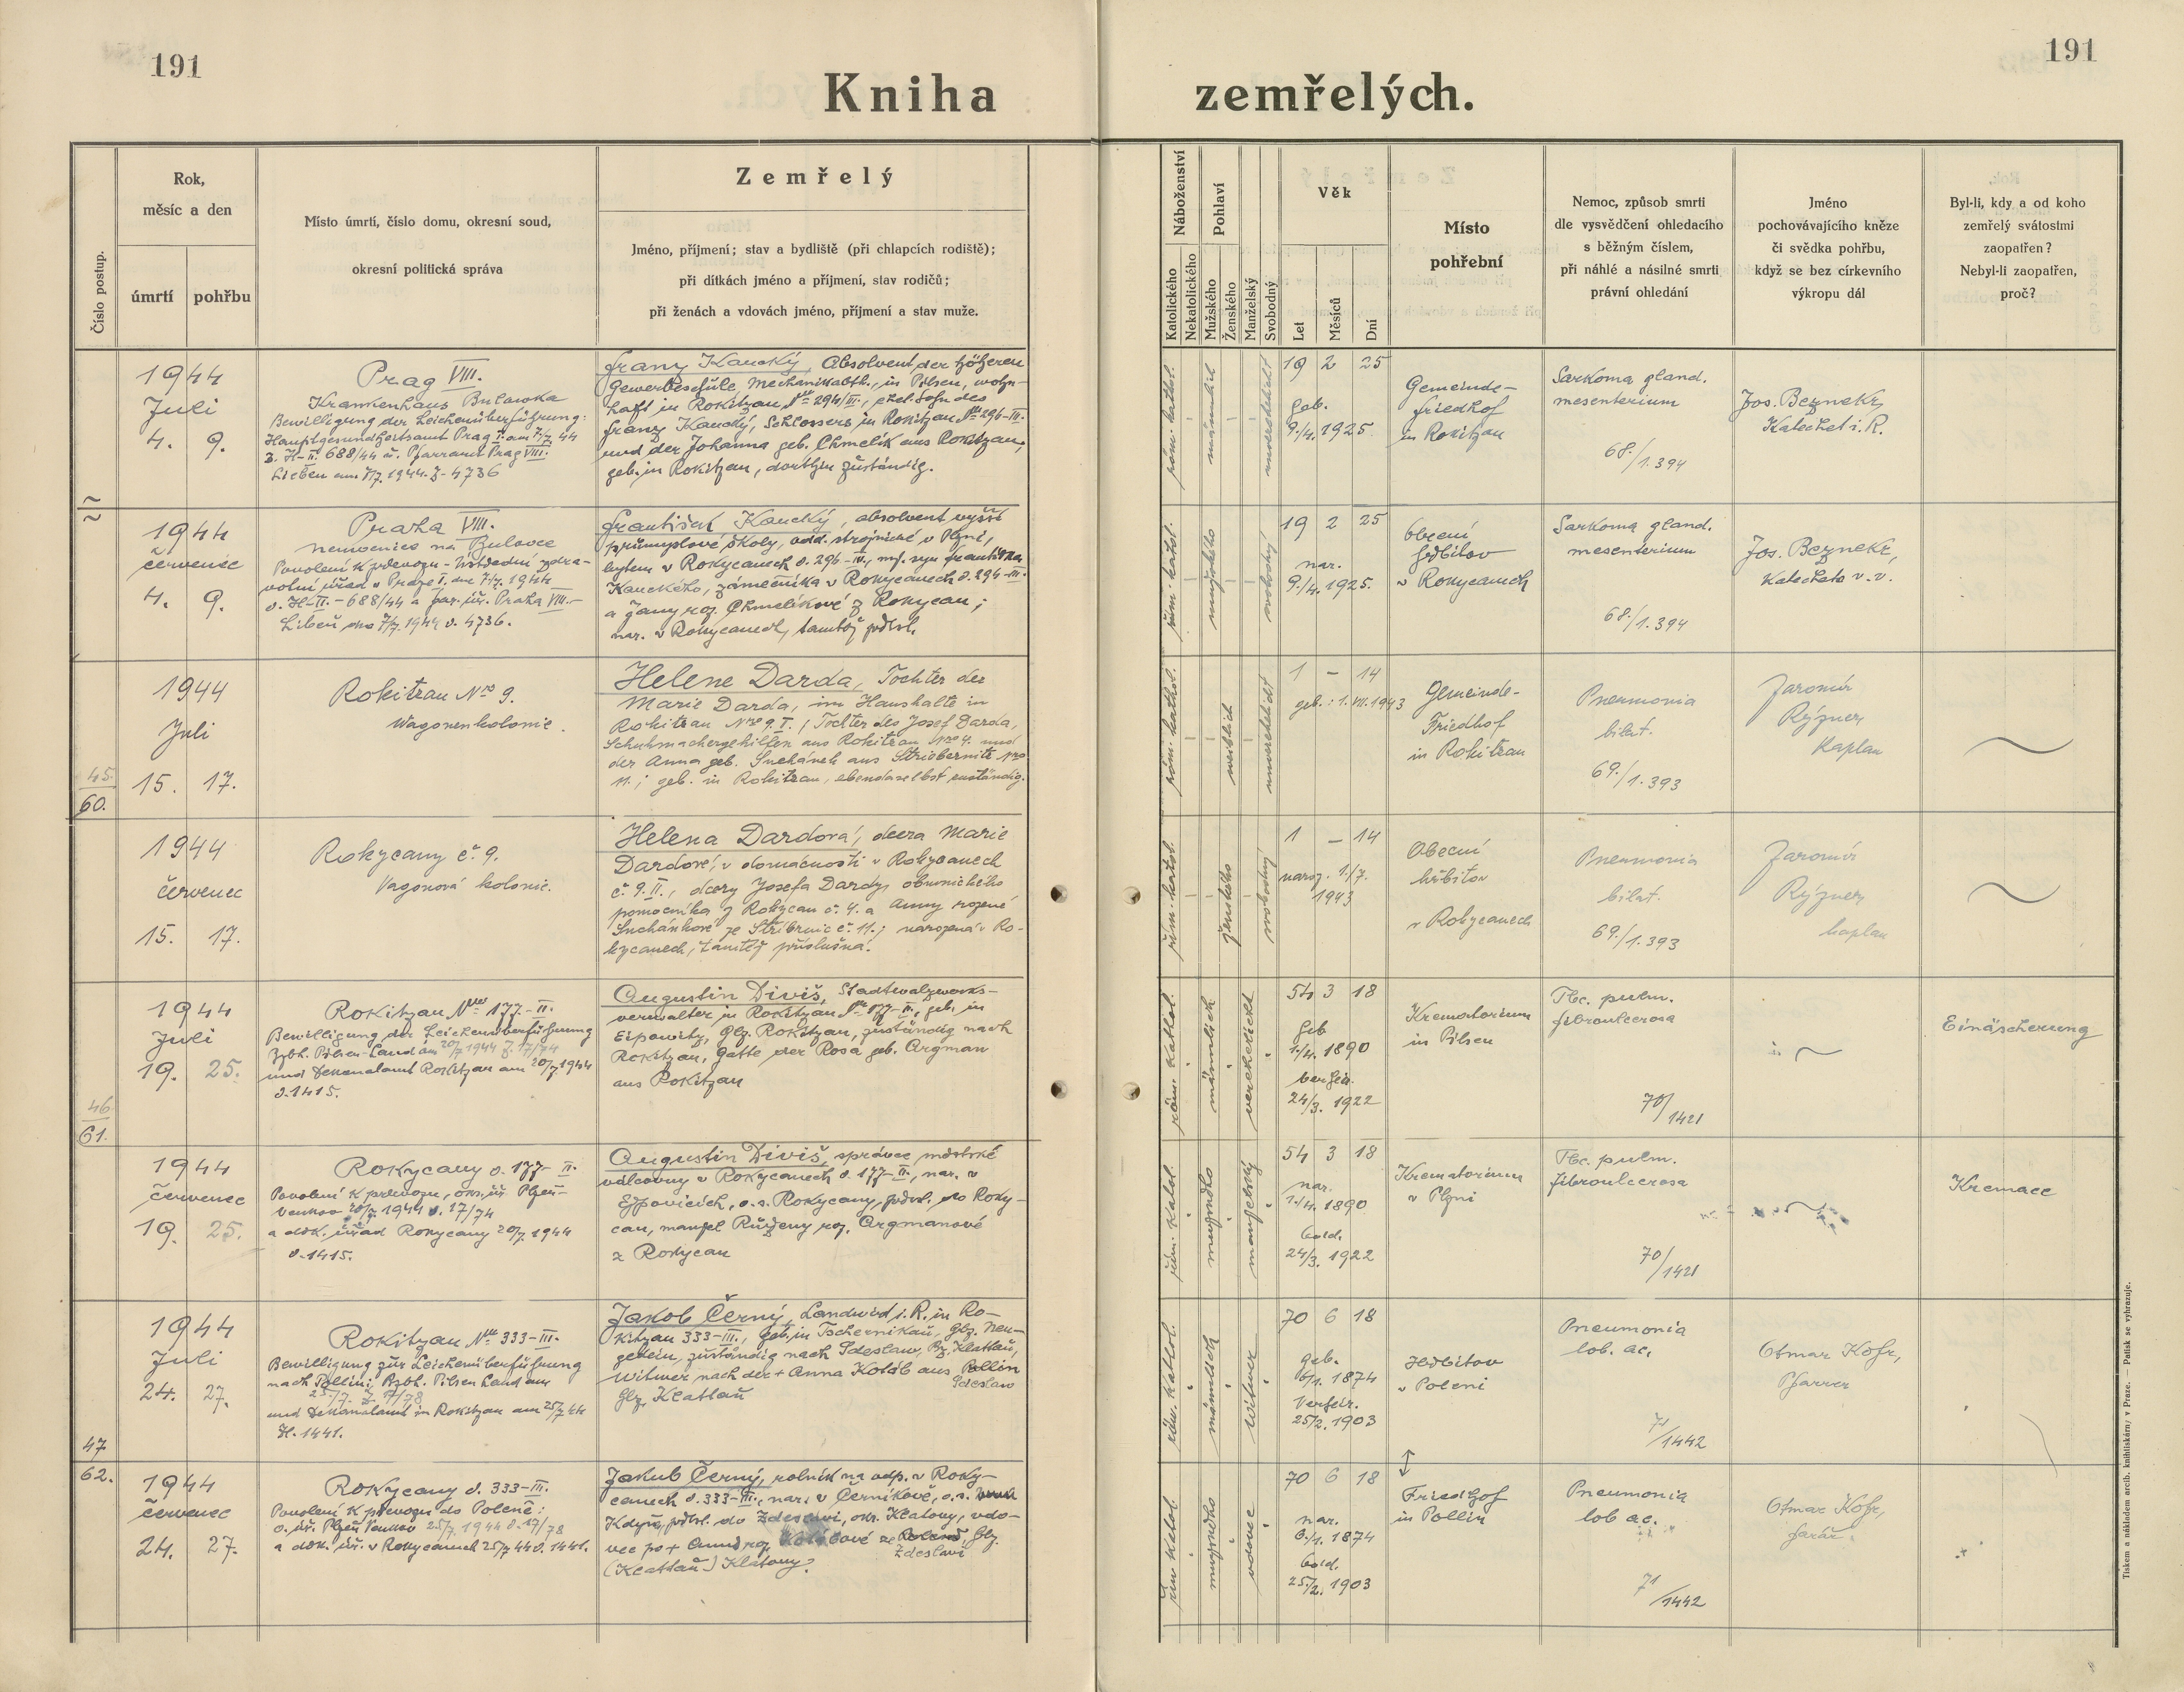 191
191
Kniha zemřelých.
Číslo postup.
Rok,
měsíc a den
úmrtí
pohřbu
Místo úmrtí, číslo domu, okresní soud,
okresní politická správa
Zemřelý
Jméno, příjmení; stav a bydliště (při chlapcích rodiště);
při dítkách jméno a příjmení, stav rodičů;
při ženách a vdovách jméno, příjmení a stav muže.
Náboženství
Katolického
Nekatolického
Pohlaví
Mužského
Ženského
Manželský
Svobodný
Věk
Let
Měsíců
Dní
Místo
pohřební
Nemoc, způsob smrti
dle vysvědčení ohledacího
s běžným číslem,
při náhlé a násilné smrti
právní ohledání
Jméno
pochovávajícího kněze
či svědka pohřbu,
když se bez církevního
výkropu dál
Byl-li, kdy a od koho
zemřelý svátostmi
zaopatřen?
Nebyl-li zaopatřen,
proč?
1944
Juli
4. 9.
Prag VIII.
Krankenhaus Bulowka
Bewilligung der Leichenüberführung:
Hauptgesundheitsamt Prag I. am 7/7. 44
Z. H-II. 688/44 u. Pfarramt Prag VIII.
Lieben am 7/7. 1944. Z. 4736
Franz Kaucký, Absolvent der höheren
Gewerbeschule, Mechanikabtlg., in Pilsen, wohn-
haft in Rokitzan, Nro 294/III., ehel. Sohn des
Franz Kaucký, Schlossers in Rokitzan Nro 296-III.
und der Johanna geb. Chmelík aus Rokitzan,
geb. in Rokitzan, dorthin zuständig.
röm. kathol.
männlich
unverehelicht
19 2 25
geb.
9./4. 1925
Gemeinde-
friedhof
in Rokitzan
Sarkoma gland.
mesenterium
68./1.394
Jos. Bezneky
Katechet i. R.
1944
červenec
4. 9.
Praha VIII.
nemocnice na Bulovce
Povolení k převozu - Ústřední zdra-
votní úřad v Praze I. dne 7/7. 1944
č. H-II. - 688/44 a far. úř. Praha VIII.-
Libeň dno 7/7. 1944 č. 4736.
František Kaucký, absolvent vyšší
průmyslové školy, odd. strojnické v Plzni,
bytem v Rokycanech č. 296-III., mž. syn Františka
Kauckého, zámečníka v Rokycanech č. 294-III.
a Jany roz. Chmelíkové z Rokycan;
nar. v Rokycanech, tamtéž přísl.
řím. katol.
mužského
svobodný
19 2 25
nar.
9./4. 1925.
Obecní
hřbitov
v Rokycanech
Sarkoma gland.
mesenterium
68./1.394
Jos. Bezneky,
Katecheta v. v.
45.
60.
1944
Juli
15. 17.
Rokitzan Nro 9.
Wagonenkolonie.
Helene Darda, Tochter der
Marie Darda, im Haushalte in
Rokitzan Nro 9. I., Tochter des Josef Darda,
Schuhmachergehilfen aus Rokitzan Nro 4. und
der Anna geb. Suchánek aus Striebernitz Nro
11.; geb. in Rokitzan, ebendaselbst zuständig.
röm. kathol.
weiblich
unverehelicht
1 - 14
geb.: 1. VII. 1943
Gemeinde-
Friedhof
in Rokitzan
Pneumonia
bilat.
69./1.393
Jaromír
Rýzner
Kaplan
1944
červenec
15. 17.
Rokycany č. 9.
Vagonová kolonie.
Helena Dardová, dcera Marie
Dardové, v domácnosti v Rokycanech
č. 9. II., dcery Josefa Dardy, obuvnického
pomocníka z Rokycan č. 4. a Anny rozené
Suchánkové ze Stříbrnic č. 11.; narozená v Ro-
kycanech, tamtéž příslušná.
řím. katol.
ženského
svobodný
1 - 14
naroz. 1./7.
1943
Obecní
hřbitov
v Rokycanech
Pneumonia
bilat.
69./1.393
Jaromír
Rýzner
kaplan
46
61.
1944
Juli
19. 25.
Rokitzan Nro 177-II.
Bewilligung der Leichenüberführung
Bzbh. Pilsen-Land am 20/7 1944 Z. 17/74
und Dekanalamt Rokitzan am 20/7 1944
č. 1415.
Augustin Diviš, Stadtwalzwerks-
verwalter in Rokitzan Nro 177-II., geb. in
Eipowitz, Gbz. Rokitzan, zuständig nach
Rokitzan, Gatte der Rosa geb. Argman
aus Rokitzan
röm. kathol.
männlich
verehelicht
54 3 18
Geb
1./4. 1890
verheir.
24/3. 1922
Krematorium
in Pilsen
Tbc. pulm.
fibroulcerosa
70/1421
Einäscherung
1944
červenec
19. 25.
Rokycany č. 177-II.
Povolení k převozu, okr. úř. Plzeň-
Venkov 20/7. 1944 č. 17/74
a děk. úřad Rokycany 20/7. 1944
č. 1415.
Augustin Diviš, správce městské
válcovny v Rokycanech č. 177-II., nar. v
Ejpovicích, o. s. Rokycany, přísl. do Roky-
can, manžel Růženy roz. Argmanové
z Rokycan
řím. katol.
mužského
manželský
54 3 18
nar.
1./4. 1890
odd.
24/3. 1922
Krematorium
v Plzni
Tbc. pulm.
fibroulcerosa
70/1421
Kremace
47
62.
1944
Juli
24. 27.
Rokitzan Nro 333-III.
Bewilligung zur Leichenüberführung
nach Pollin: Bzbh. Pilsen Land am
25./7. Z. 17/78
und Dekanalamt in Rokitzan am 25/7 44
Z. 1441.
Jakob Černý, Landwird i. R. in Ro-
kitzan 333-III., geb. in Tschernikau, Gbz. Neu-
gedein, zuständig nach Sdeslaw, Bz. Klattau,
Witwer nach der + Anna Koláb aus Pollin
Sdeslaw
Gbz. Klattau
röm. kathol.
männlich
Witwer
70 6 18
geb.
6/1. 1874
Verheir.
25/2. 1903
Hřbitov
v Poleni
Pneumonia
lob. ac.
71/1442
Otmar Kohr,
Pfarrer
1944
červenec
24. 27.
Rokycany č. 333-III.
Povolení k převozu do Poleně:
o. úř. Plzeň Venkov 25/7. 1944 č. 17/78
a děk. úř. v Rokycanech 25/7 44 č. 1441.
Jakub Černý, rolník na odp. v Roky-
canech č. 333-III., nar. v Černíkově, o. s.
Kdyň, přísl. do Zdeslavi, okr. Klatovy, vdo-
vec po + Anně roz. ze Poleně, Gbz.
Zdeslavi
(Klattau) Klatovy.
řím katol
mužského
vdovec
70 6 18
nar.
6./1. 1874
odd.
25/2. 1903
Friedhof
in Pollin
Pneumonia
lob ac.
71/1442
Otmar Kohr,
farář.
Tiskem a nákladem arcib. knihtiskárny v Praze. — Patisk se vyhrazuje.